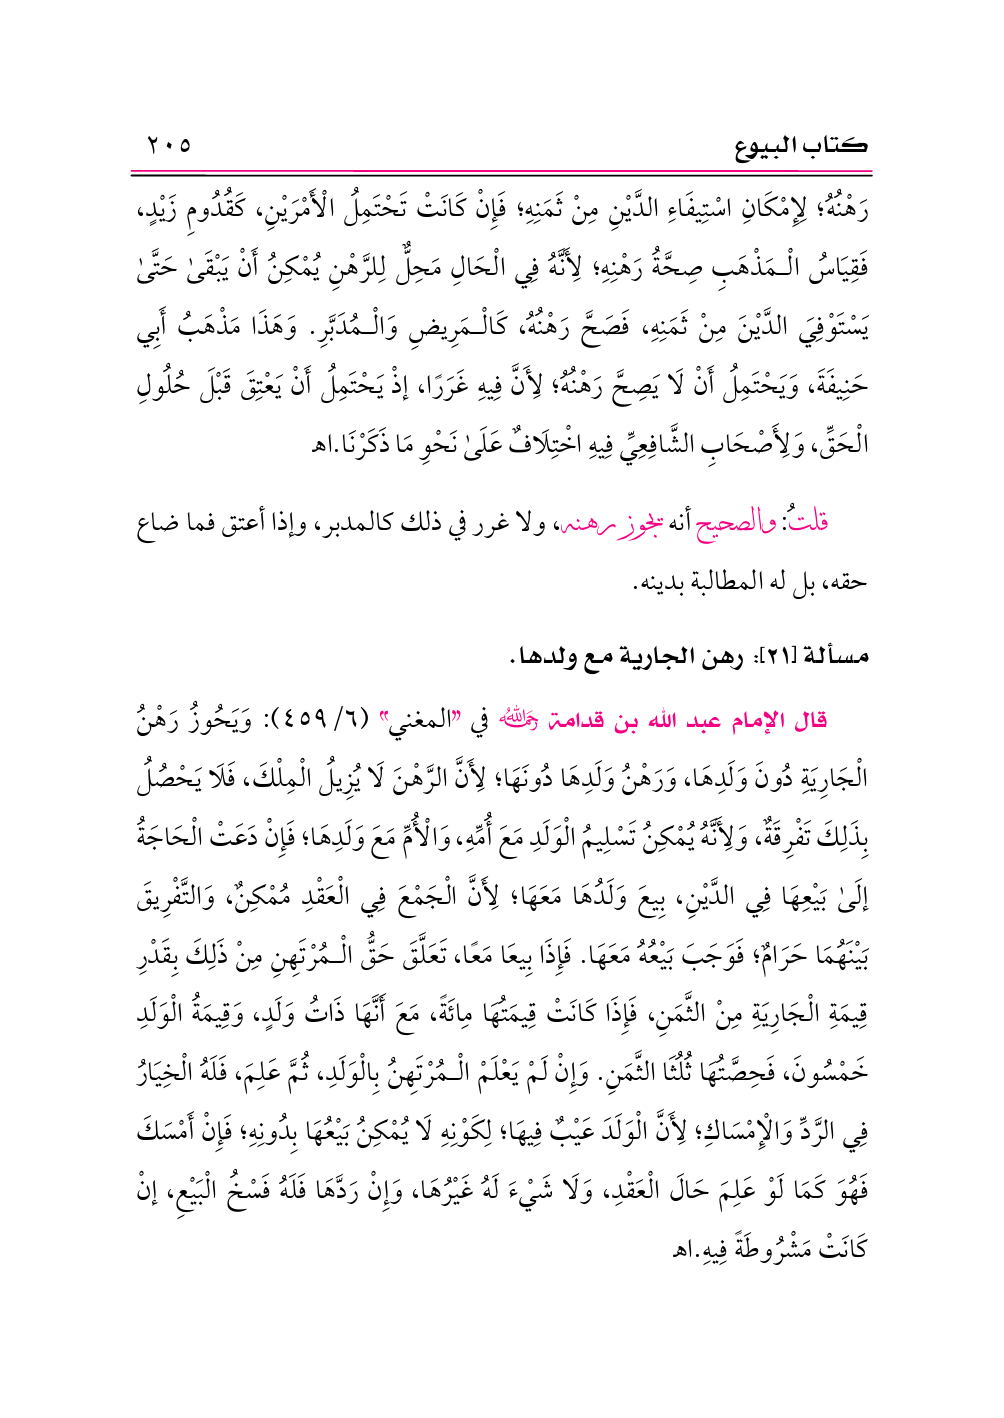 كتاب البيوع ٢٠٥
رَهْنُهُ؛ لِإِمْكَانِ اسْتِيفَاءِ الدَّيْنِ مِنْ ثَمَنِهِ؛ فَإِنْ كَانَتْ تَحْتَمِلُ الْأَمْرَيْنِ، كَقُدُومِ زَيْدٍ،
فَقِيَاسُ الْـمَذْهَبِ صِحَّةُ رَهْنِهِ؛ لِأَنَّهُ فِي الْحَالِ مَحِلٌّ لِلرَّهْنِ يُمْكِنُ أَنْ يَبْقَىٰ حَتَّىٰ
يَسْتَوْفِيَ الدَّيْنَ مِنْ ثَمَنِهِ، فَصَحَّ رَهْنُهُ، كَالْـمَرِيضِ وَالْـمُدَبَّرِ. وَهَذَا مَذْهَبُ أَبِي
حَنِيفَةَ، وَيَحْتَمِلُ أَنْ لَا يَصِحَّ رَهْنُهُ؛ لِأَنَّ فِيهِ غَرَرًا، إذْ يَحْتَمِلُ أَنْ يَعْتِقَ قَبْلَ حُلُولِ
الْحَقِّ، وَلِأَصْحَابِ الشَّافِعِيِّ فِيهِ اخْتِلَافٌ عَلَىٰ نَحْوِ مَا ذَكَرْنَا.اهـ
قلتُ: والصحيح أنه يجوز رهنه، ولا غرر في ذلك كالمدبر، وإذا أعتق فما ضاع
حقه، بل له المطالبة بدينه.
مسألة [٢١]: رهن الجارية مع ولدها.
قال الإمام عبد الله بن قدامة رحمه الله في "المغني" (٦/ ٤٥٩): وَيَجُوزُ رَهْنُ
الْجَارِيَةِ دُونَ وَلَدِهَا، وَرَهْنُ وَلَدِهَا دُونَهَا؛ لِأَنَّ الرَّهْنَ لَا يُزِيلُ الْمِلْكَ، فَلَا يَحْصُلُ
بِذَلِكَ تَفْرِقَةٌ، وَلِأَنَّهُ يُمْكِنُ تَسْلِيمُ الْوَلَدِ مَعَ أُمِّهِ، وَالْأُمِّ مَعَ وَلَدِهَا؛ فَإِنْ دَعَتْ الْحَاجَةُ
إلَىٰ بَيْعِهَا فِي الدَّيْنِ، بِيعَ وَلَدُهَا مَعَهَا؛ لِأَنَّ الْجَمْعَ فِي الْعَقْدِ مُمْكِنٌ، وَالتَّفْرِيقَ
بَيْنَهُمَا حَرَامٌ؛ فَوَجَبَ بَيْعُهُ مَعَهَا. فَإِذَا بِيعَا مَعًا، تَعَلَّقَ حَقُّ الْـمُرْتَهِنِ مِنْ ذَلِكَ بِقَدْرِ
قِيمَةِ الْجَارِيَةِ مِنْ الثَّمَنِ، فَإِذَا كَانَتْ قِيمَتُهَا مِائَةً، مَعَ أَنَّهَا ذَاتُ وَلَدٍ، وَقِيمَةُ الْوَلَدِ
خَمْسُونَ، فَحِصَّتُهَا ثُلُثَا الثَّمَنِ. وَإِنْ لَمْ يَعْلَمْ الْـمُرْتَهِنُ بِالْوَلَدِ، ثُمَّ عَلِمَ، فَلَهُ الْخِيَارُ
فِي الرَّدِّ وَالْإِمْسَاكِ؛ لِأَنَّ الْوَلَدَ عَيْبٌ فِيهَا؛ لِكَوْنِهِ لَا يُمْكِنُ بَيْعُهَا بِدُونِهِ؛ فَإِنْ أَمْسَكَ
فَهُوَ كَمَا لَوْ عَلِمَ حَالَ الْعَقْدِ، وَلَا شَيْءَ لَهُ غَيْرُهَا، وَإِنْ رَدَّهَا فَلَهُ فَسْخُ الْبَيْعِ، إنْ
كَانَتْ مَشْرُوطَةً فِيهِ.اهـ